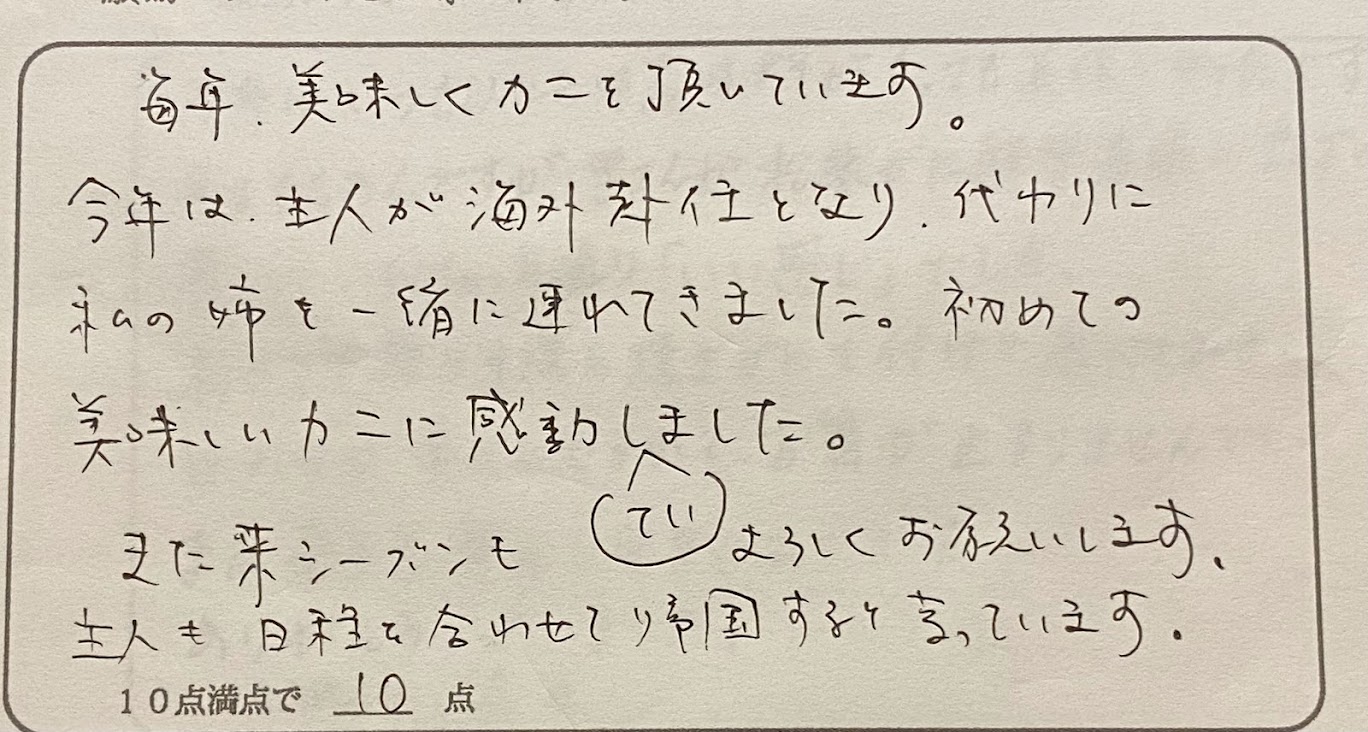 毎年、美味しくカニを頂いています。
今年は、主人が海外赴任となり、代わりに
私の姉を一緒に連れてきました。初めての
美味しいカニに感動しました。
てい
また来シーズンも よろしくお願いします。
主人も日程を合わせて帰国すると言っています。
10点満点で 10 点